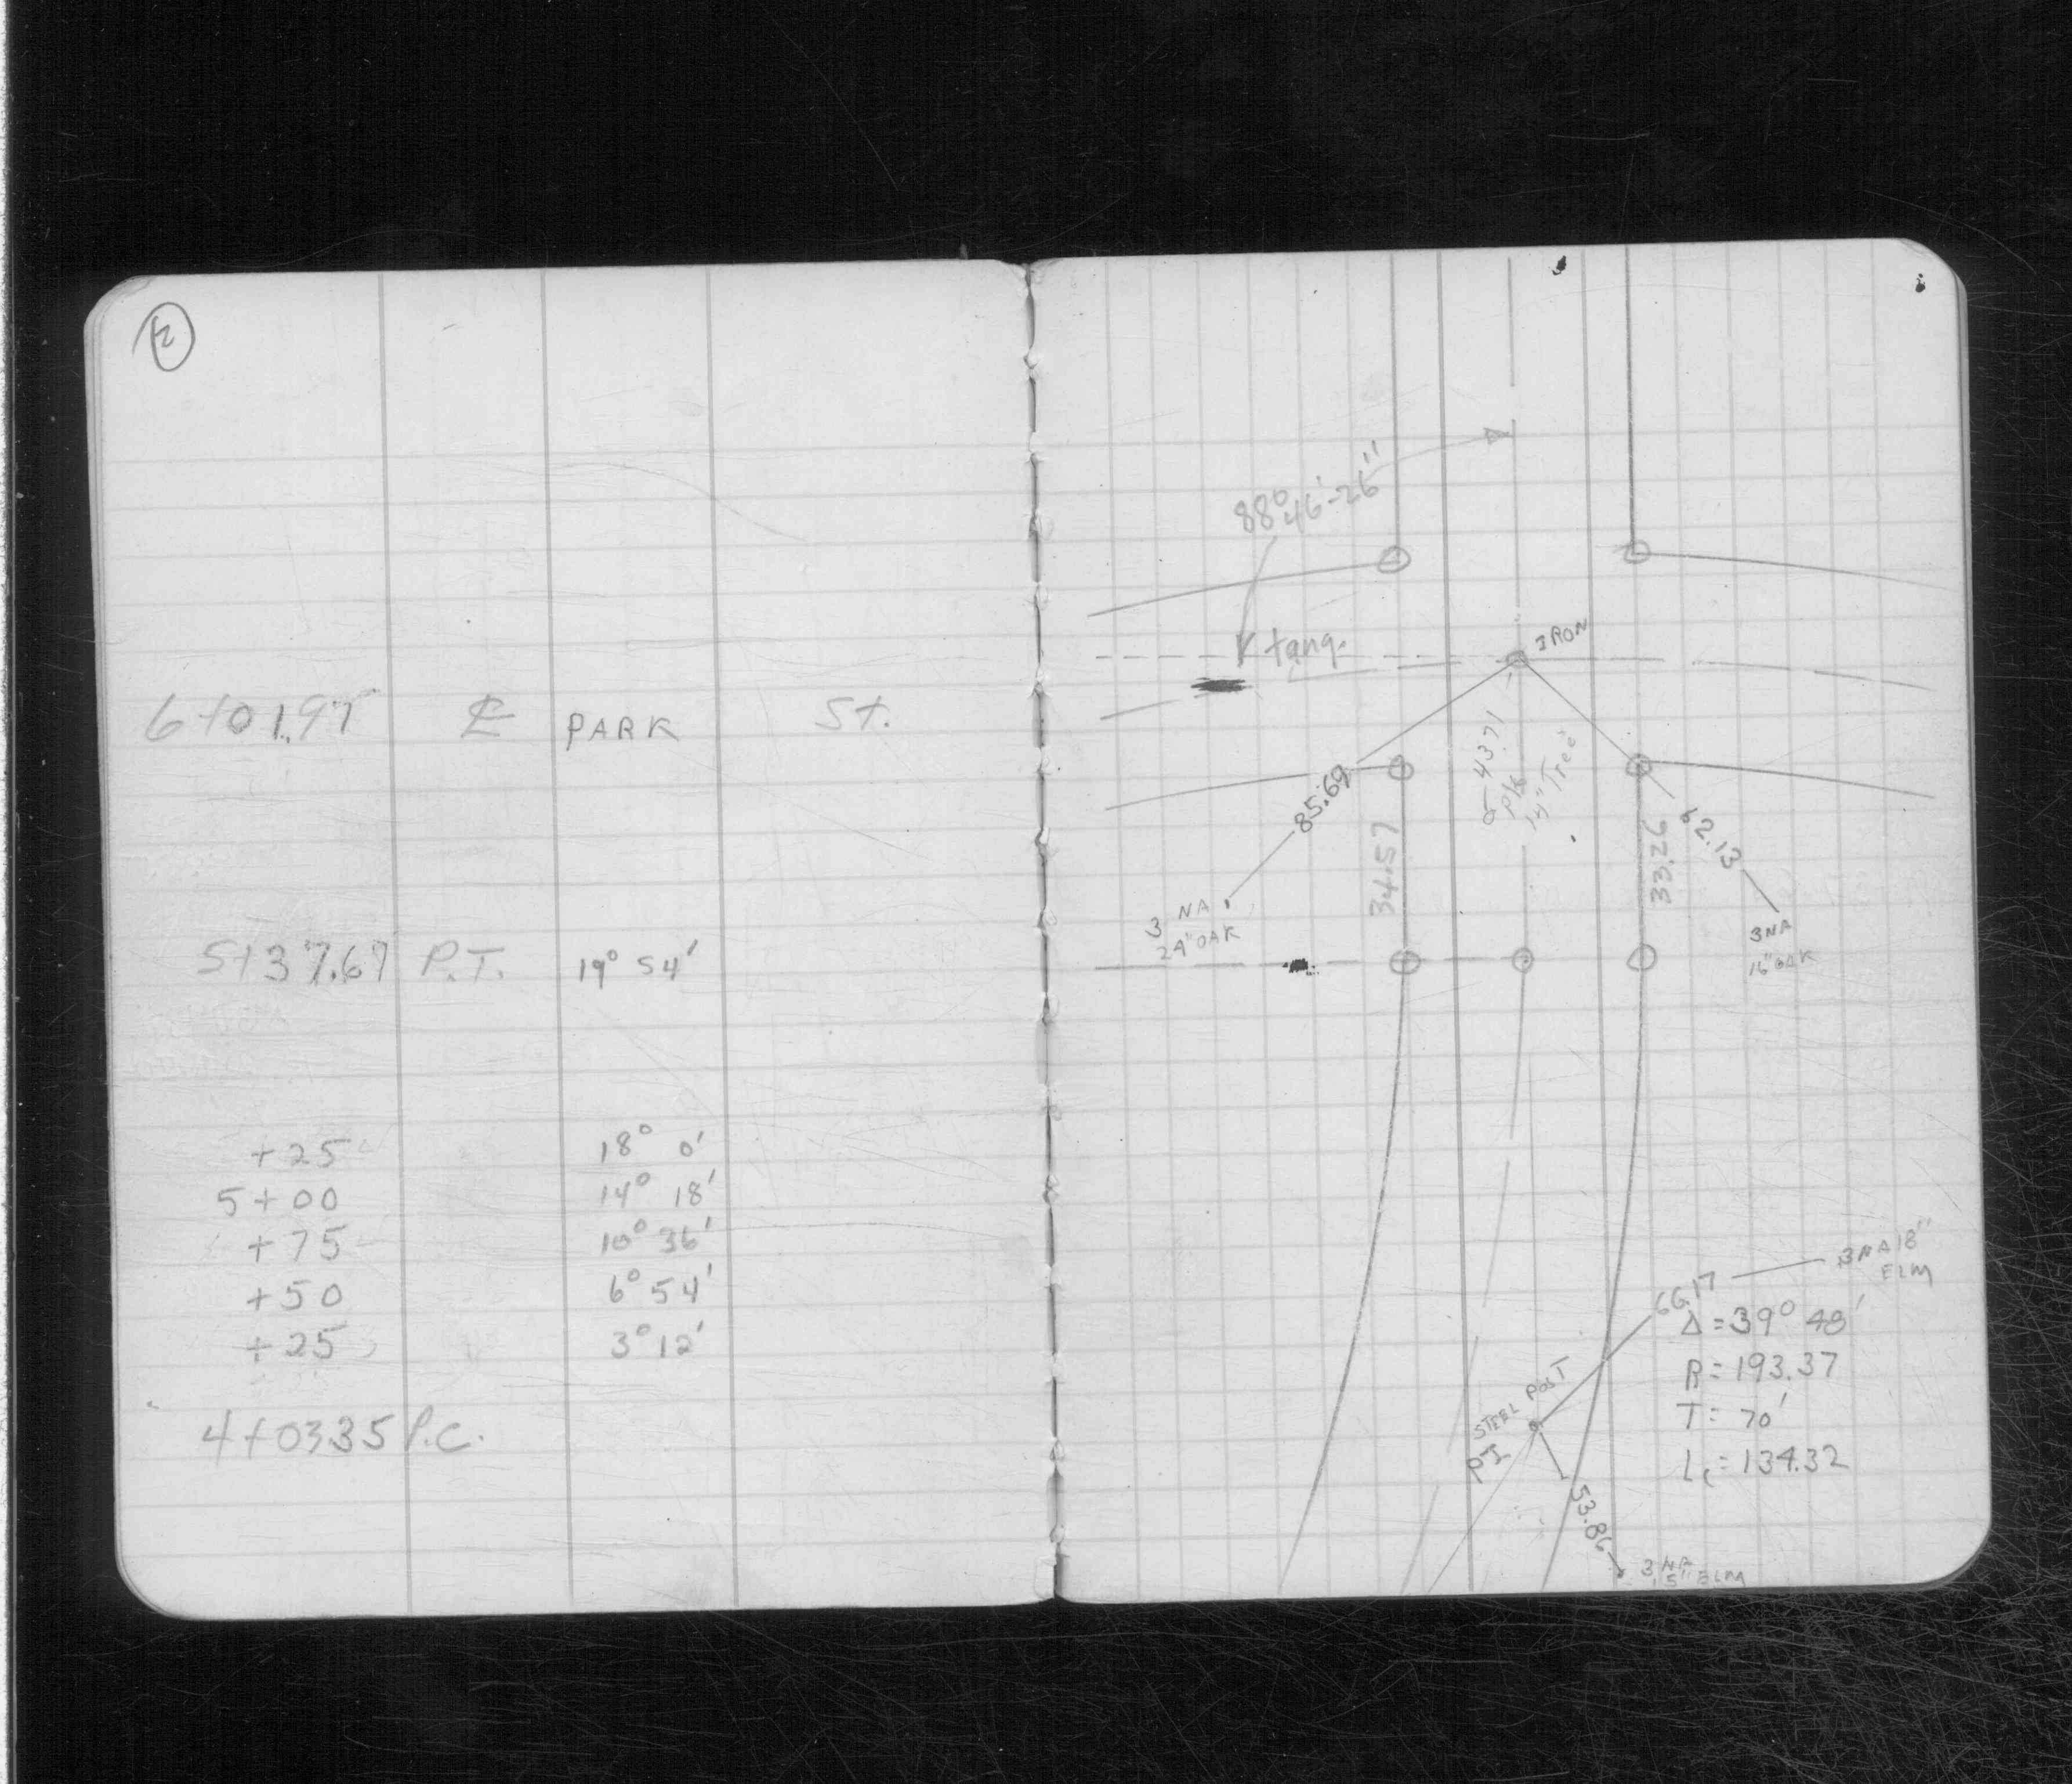 2
6+01.95 ℄ PARK St.
5+37.67 P.T. 19° 54'
+25 18° 0'
5+00 14° 18'
+75 10° 36'
+50 6° 54'
+25 3° 12'
4+03.35 P.C.
88° 46'-26"
tang.
IRON
43.71
14" Tree
85.69
34.57
33.26
62.13
3 NA
24" OAK
3 NA
16" OAK
66.17
3 NA 18"
ELM
Δ = 39° 48'
R = 193.37
T = 70'
L = 134.32
STEEL POST
P.I
53.86
3 NA
15" ELM